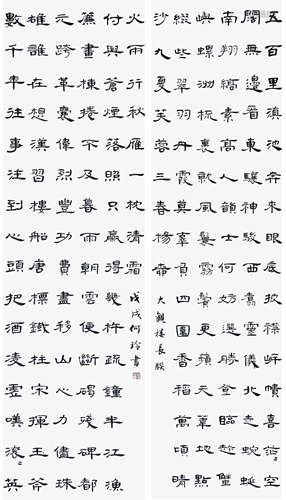 五百里滇池奔來眼底披襟岸幘喜茫々空
闊無邊看東驤神駿西翥靈儀北走蜿蜒
南翔縞素高人韻士何妨選勝登臨趁蟹
嶼螺洲梳裹就風鬟霧鬢更蘋天葦地點
綴些翠羽丹霞莫孤負四圍香稻萬頃晴
沙九夏芙蓉三春楊柳
大觀樓長聯
數千年往事注到心頭把酒凌虛嘆滾々英
雄誰在想漢習樓船唐標鐵柱宋揮玉斧
元跨革囊偉烈豐功費盡移山心力儘珠
簾畫棟捲不及暮雨朝雲便斷碣殘碑都
付與蒼煙落照只贏得幾杵疏鐘半江漁
火兩行秋雁一枕清霜
戊戌何玲書